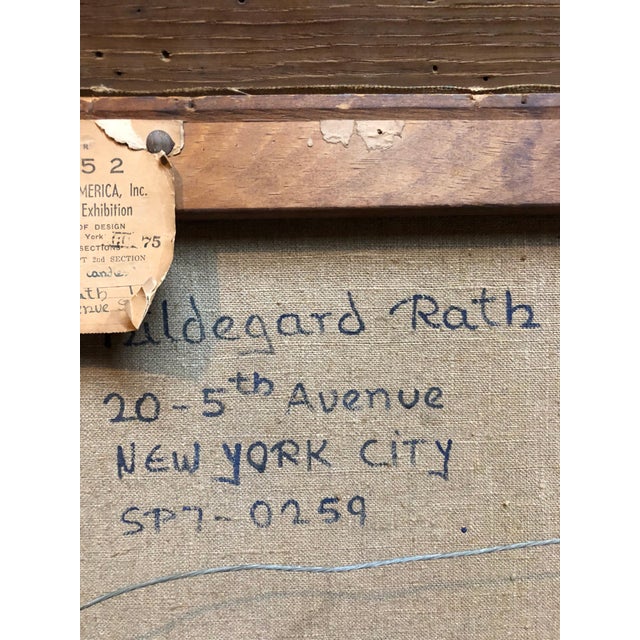 R
52
MERICA, Inc.
Exhibition
OF DESIGN
York 75
SECTIONS
T 2nd SECTION
candle
ath
enue
Hildegard Rath
20-5th Avenue
NEW YORK CITY
SP7-0259